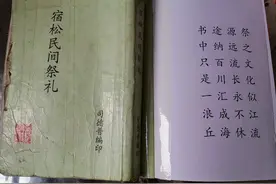 宿松民间祭礼
尚德编印
祭之文化似江流
源远流长永不休
途纳百川汇成海
书中只是一浪丘